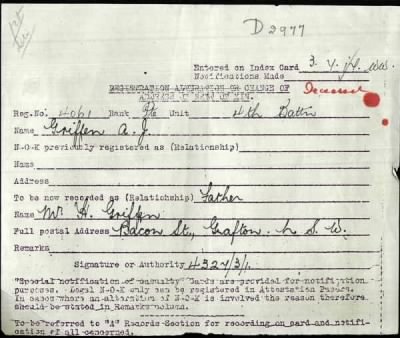 D 2977
Entered on Index Card 3.
Notifications Made
REGISTRATION ALTERATION OR CHANGE OF Deceased
ADDRESS OF NEXT OF KIN.
Reg. No. 4061 Rank Pte Unit 4th Battn
Name Griffen A. J.
N-O-K previously registered as (Relationship)
Name
Address
To be now recorded as (Relationship) Father
Name Mr. H. Griffen
Full postal Address Bacon St., Grafton. N. S. W.
Remarks
Signature or Authority 4327/3/1.
"Special notification of casualty" Cards are provided for notification
purposes. Legal N-O-K only can be registered in Attestation Papers.
In cases where an alteration of N-O-K is involved the reason therefore
should be stated in Remarks column.
To be referred to "A" Records Section for recording on card and notifi-
cation of all concerned.